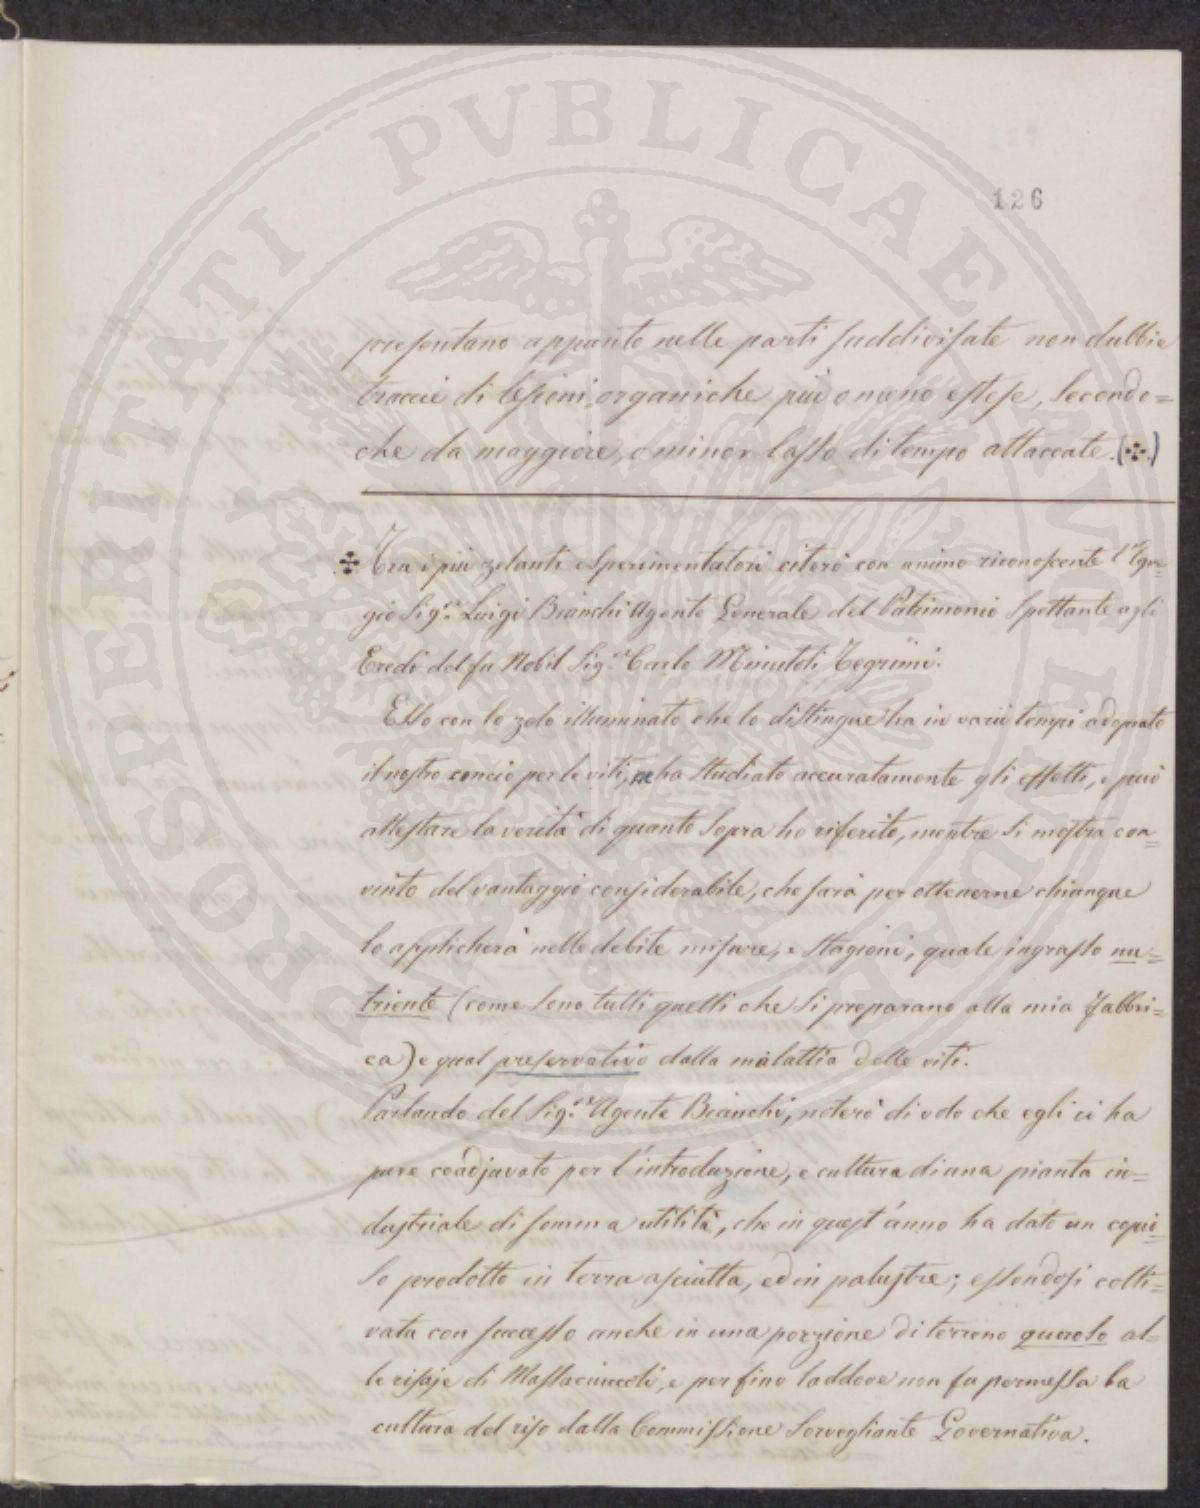 PROSPERITATI PVBLICAE AVGENDAE
126
presentano appunto nelle parti suddivisate non dubbie
traccie di lesioni organiche più o meno estese, secondo=
che da maggiore, o minor lasso di tempo attaccate. (✣)
✣ Tra i più zelanti esperimentatori citerò con animo riconoscente l'Egre=
gio Sig.re Luigi Bianchi Agente Generale del Patrimonio spettante agli
Eredi del fu Nobil Sig.re Carlo Minutoli Tegrimi.
Esso con lo zelo illuminato che lo distingue ha in varii tempi adoprato
il nostro concio per le viti, ne ha studiato accuratamente gli effetti, e può
attestare la verità di quanto sopra ho riferito, mentre si mostra con=
vinto del vantaggio considerabile, che sarà per ottenerne chiunque
lo applicherà nelle debite misure, e stagioni, quale ingrasso nu=
triente (come sono tutti quelli che si preparano alla mia Fabbri=
ca) e qual preservativo dalla malattia delle viti.
Parlando del Sig.re Agente Bianchi, noterò di volo che egli ci ha
pure coadjuvato per l'introduzione, e cultura di una pianta in=
dustriale di somma utilità, che in quest'anno ha dato un copio=
so prodotto in terra asciutta, ed in palustre; essendosi colti=
vata con successo anche in una porzione di terreno al=
le risaje di Massaciuccoli, e per fino laddove non fu permessa la
cultura del riso dalla Commissione Sorvegliante Governativa.